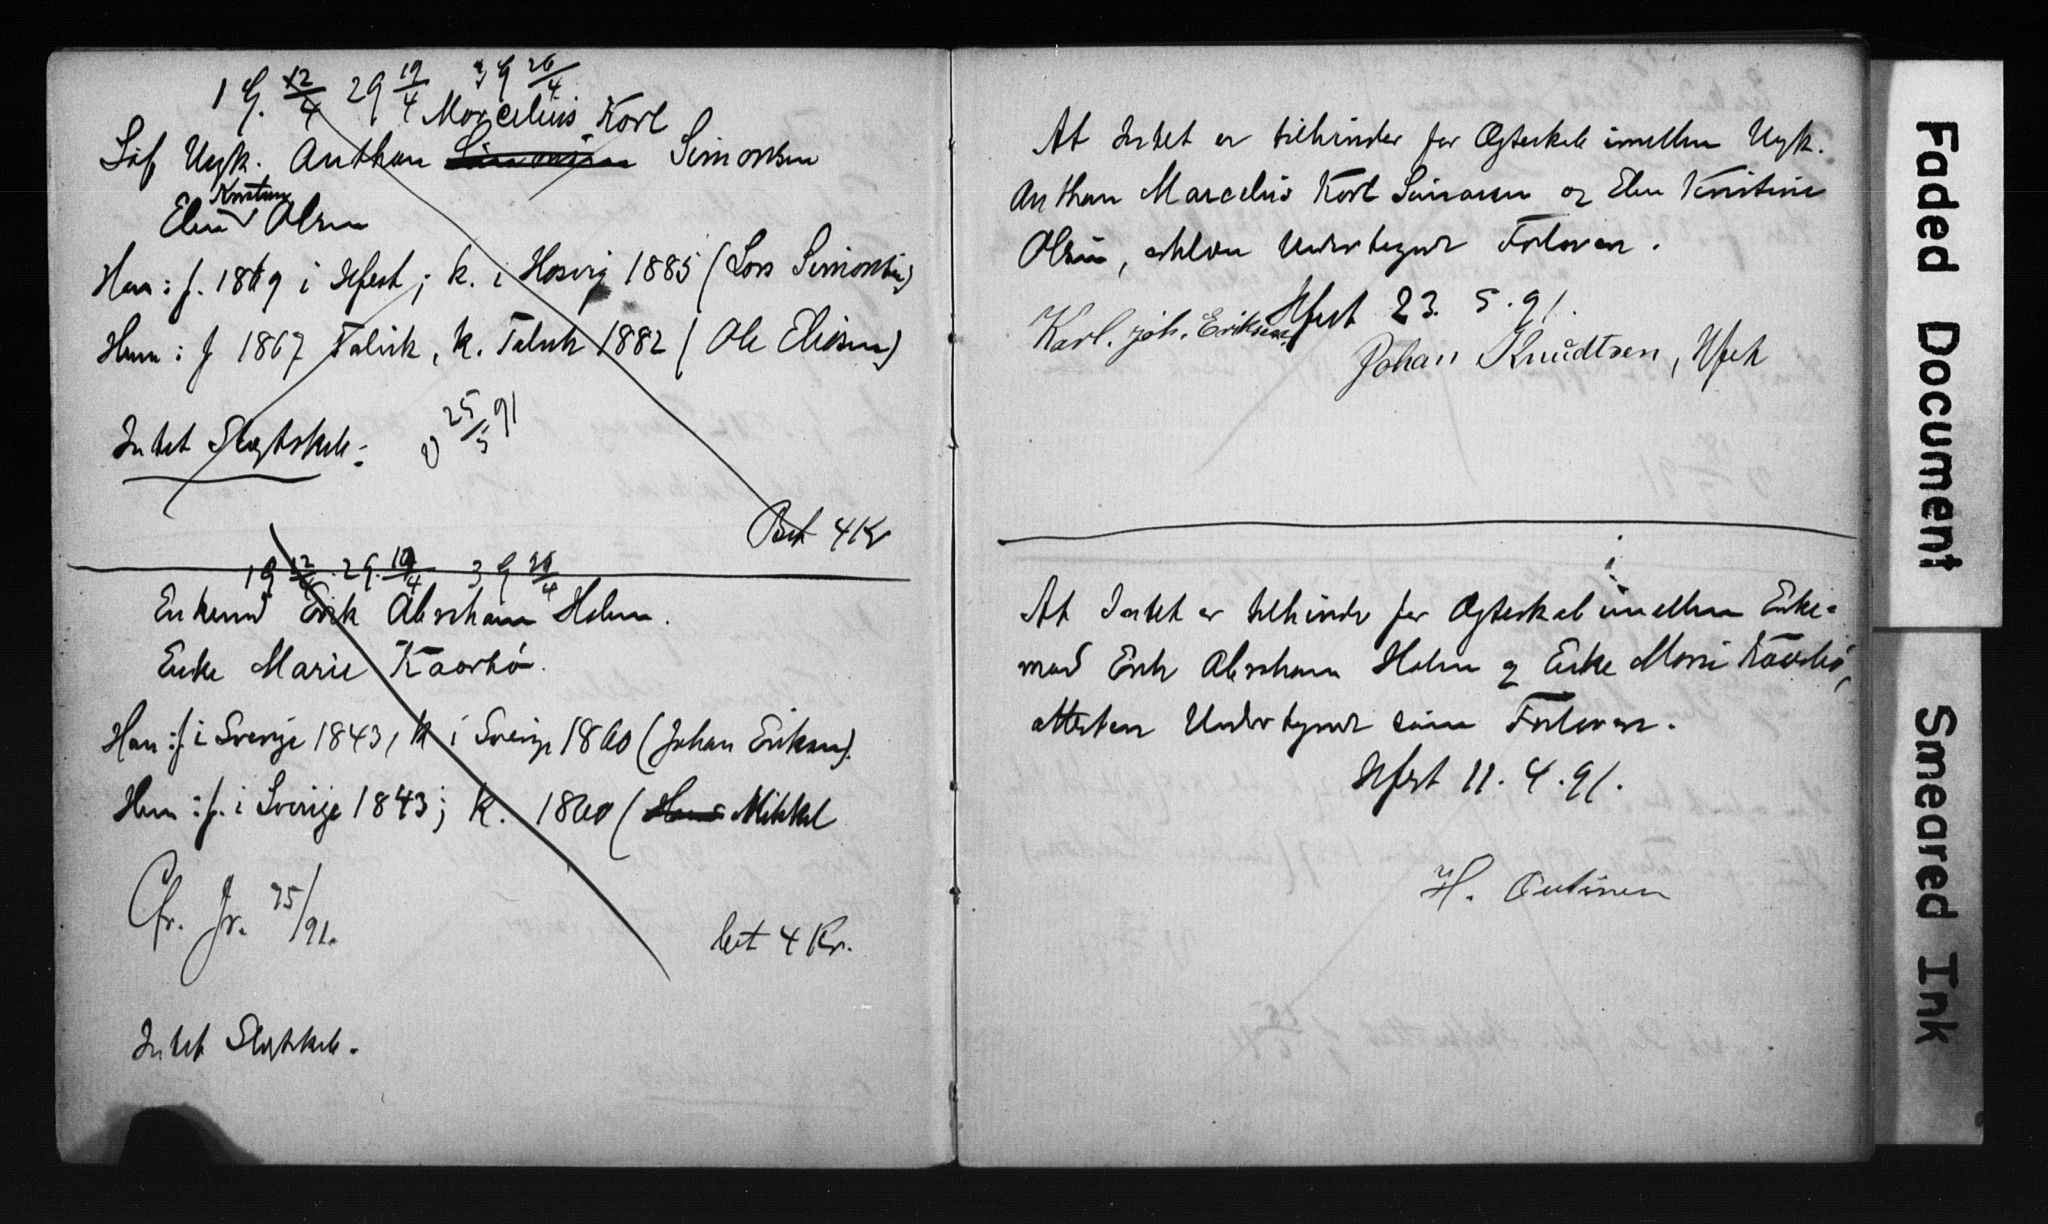 1 G. 12/4 2 G 19/4 3 G 26/4
Marcelius Karl
Ungk. Anthon Simonsen Simonsen
Kristine
Elen Olsen
Han: f. 1869 i Hfest; k. i Hasvig 1885 (Lars Simonsen)
Hun: f 1867 Talvik, k. Talvik 1882 (Ole Eliasen)
Intet Slægtskab.
v 25/5 91
Bet 4 Kr
1 G 12/4. 2 G. 19/4 3 G 26/4
Enkemd Erik Abraham Holm.
Enke Marie Kaarbø.
Han: f i Sverige 1843, k i Sverige 1860 (Johan Eriksen).
Hun: f. i Sverige 1843; k. 1860 (Hans Mikkel
Cfr. Jr. 25/91.
bet 4 Kr.
Intet Slegtskab.
At Intet er tilhinder for Ægteskab imellem Ungk.
Anthon Marcelius Karl Simonsen og Elen Kristine
Olsen, Undertegnede Forlovere.
Hfest 23. 5. 91.
Karl. Joh. Eriksen
Johan Knudtsen, Hfest
At Intet er tilhinder for Ægteskab imellem Enke-
mand Erik Abraham Holm og Enke Marie Kaarbø,
attesteres Undertegnede som Forlovere.
Hfest 11. 4. 91.
H.
Faded Document
Smeared Ink